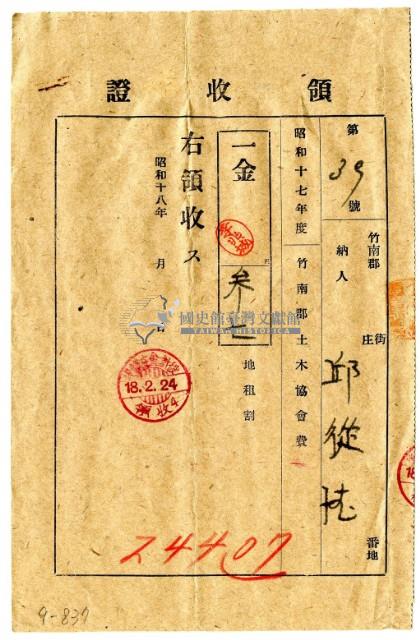 領收證
第39號
竹南郡 街庄 番地
納人 邱從德
昭和十七年度 竹南郡土木協會費
一金 地租割
右領收ス
昭和十八年 月 日
18.2.24
領收
國史館臺灣文獻館
TAIWAN HISTORICA
24407
9-837